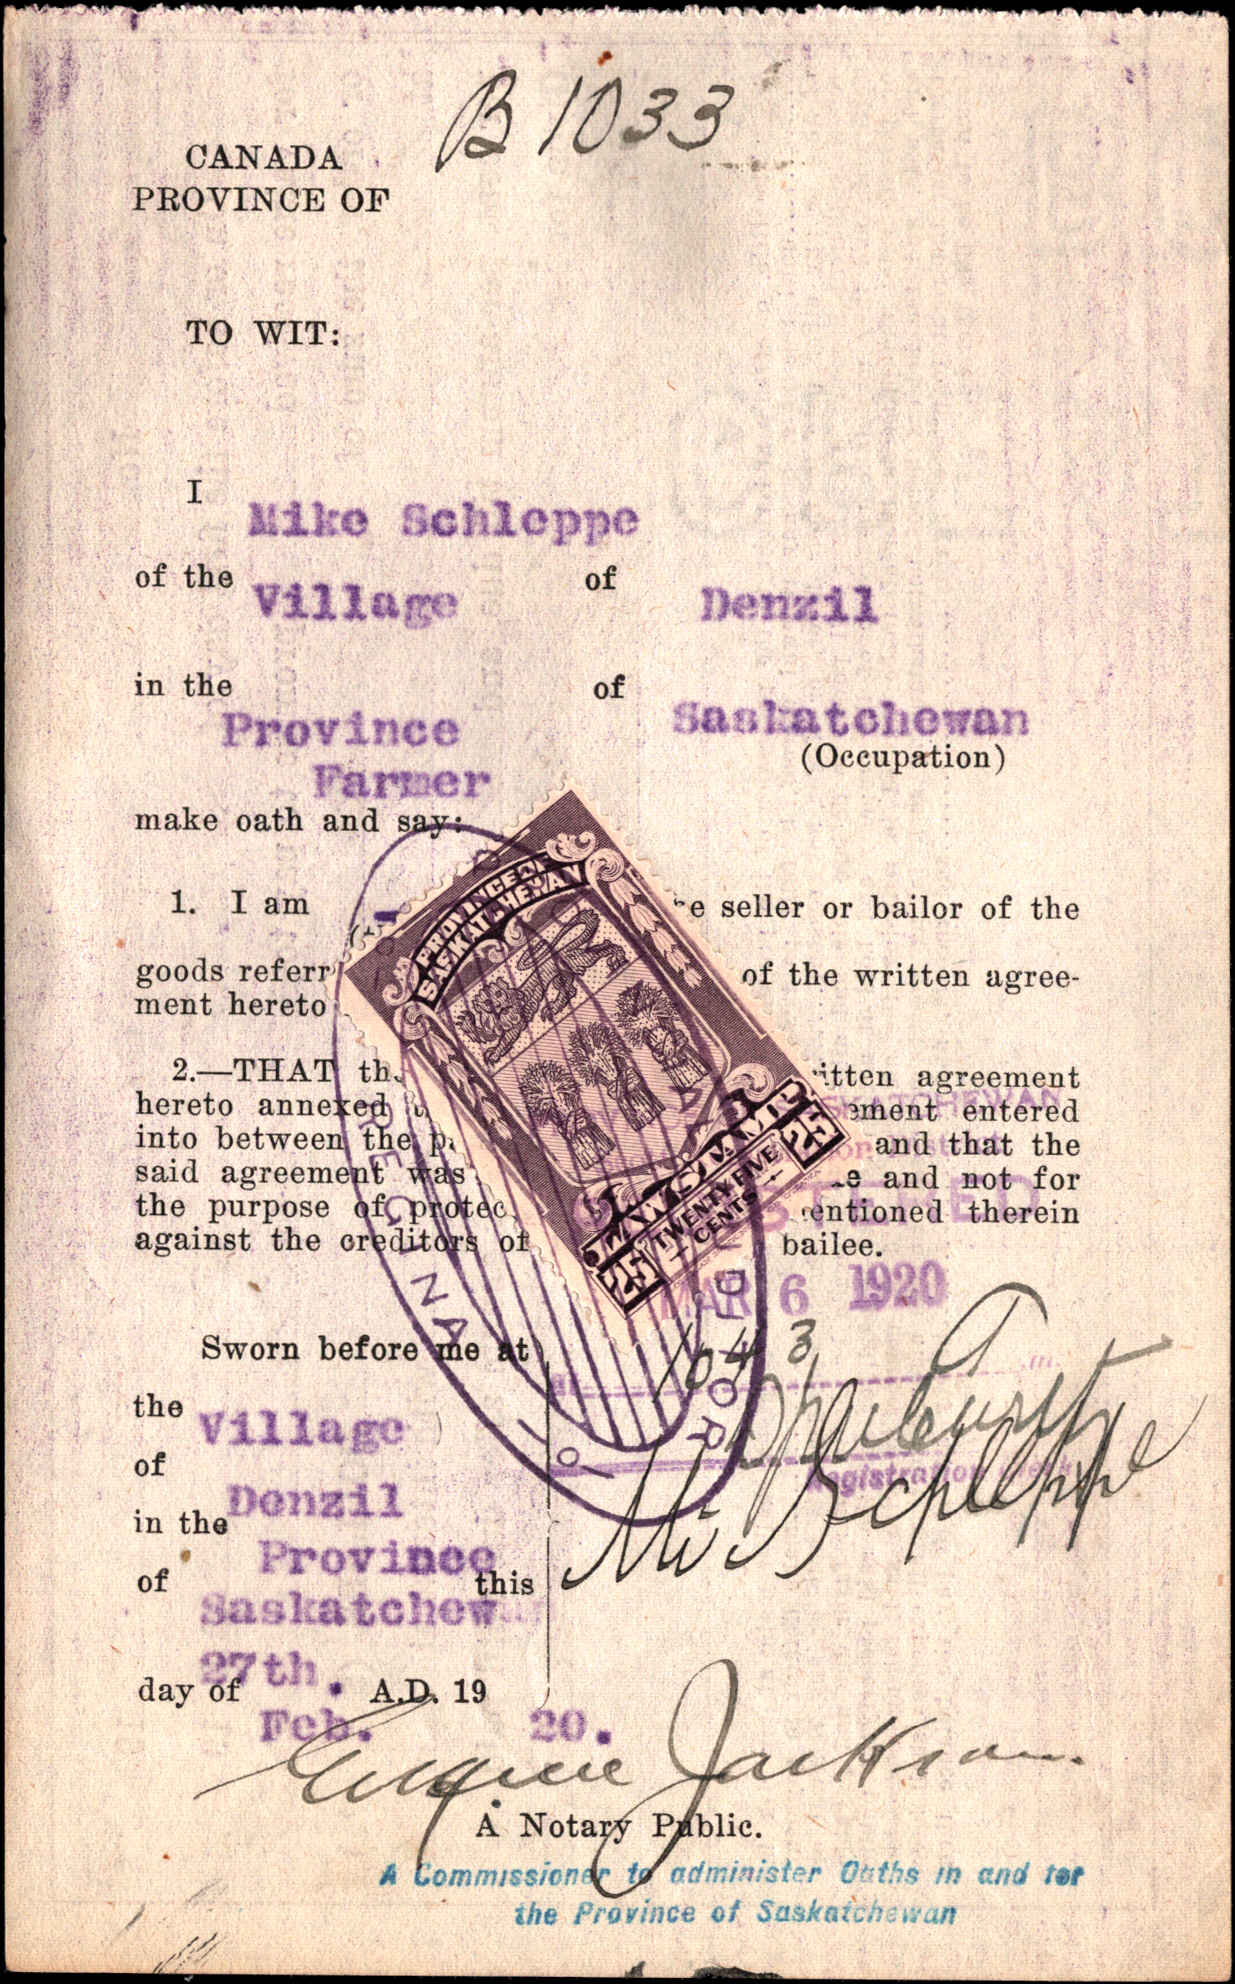 B 1033
CANADA
PROVINCE OF
TO WIT:
I Mike Schleppe
of the Village of Denzil
in the Province of Saskatchewan
(Occupation)
Farmer
make oath and say:
1. I am seller or bailor of the
goods of the written agree-
ment hereto
2.—THAT agreement
hereto annexed entered
into between the and that the
said agreement was and not for
the purpose of therein
against the creditors of bailee.
PROVINCE OF
SASKATCHEWAN
LAW STAMP
25 TWENTY FIVE CENTS 25
REGINA
AUDITOR
SASKATCHEWAN
MAR 6 1920
1043
Registration Clerk
Sworn before me at
the Village
of Denzil
in the Province
of Saskatchewan this
27th.
day of Feb. A.D. 19 20.
M Schleppe
Eugene Jackson.
A Notary Public.
A Commissioner to administer Oaths in and for
the Province of Saskatchewan